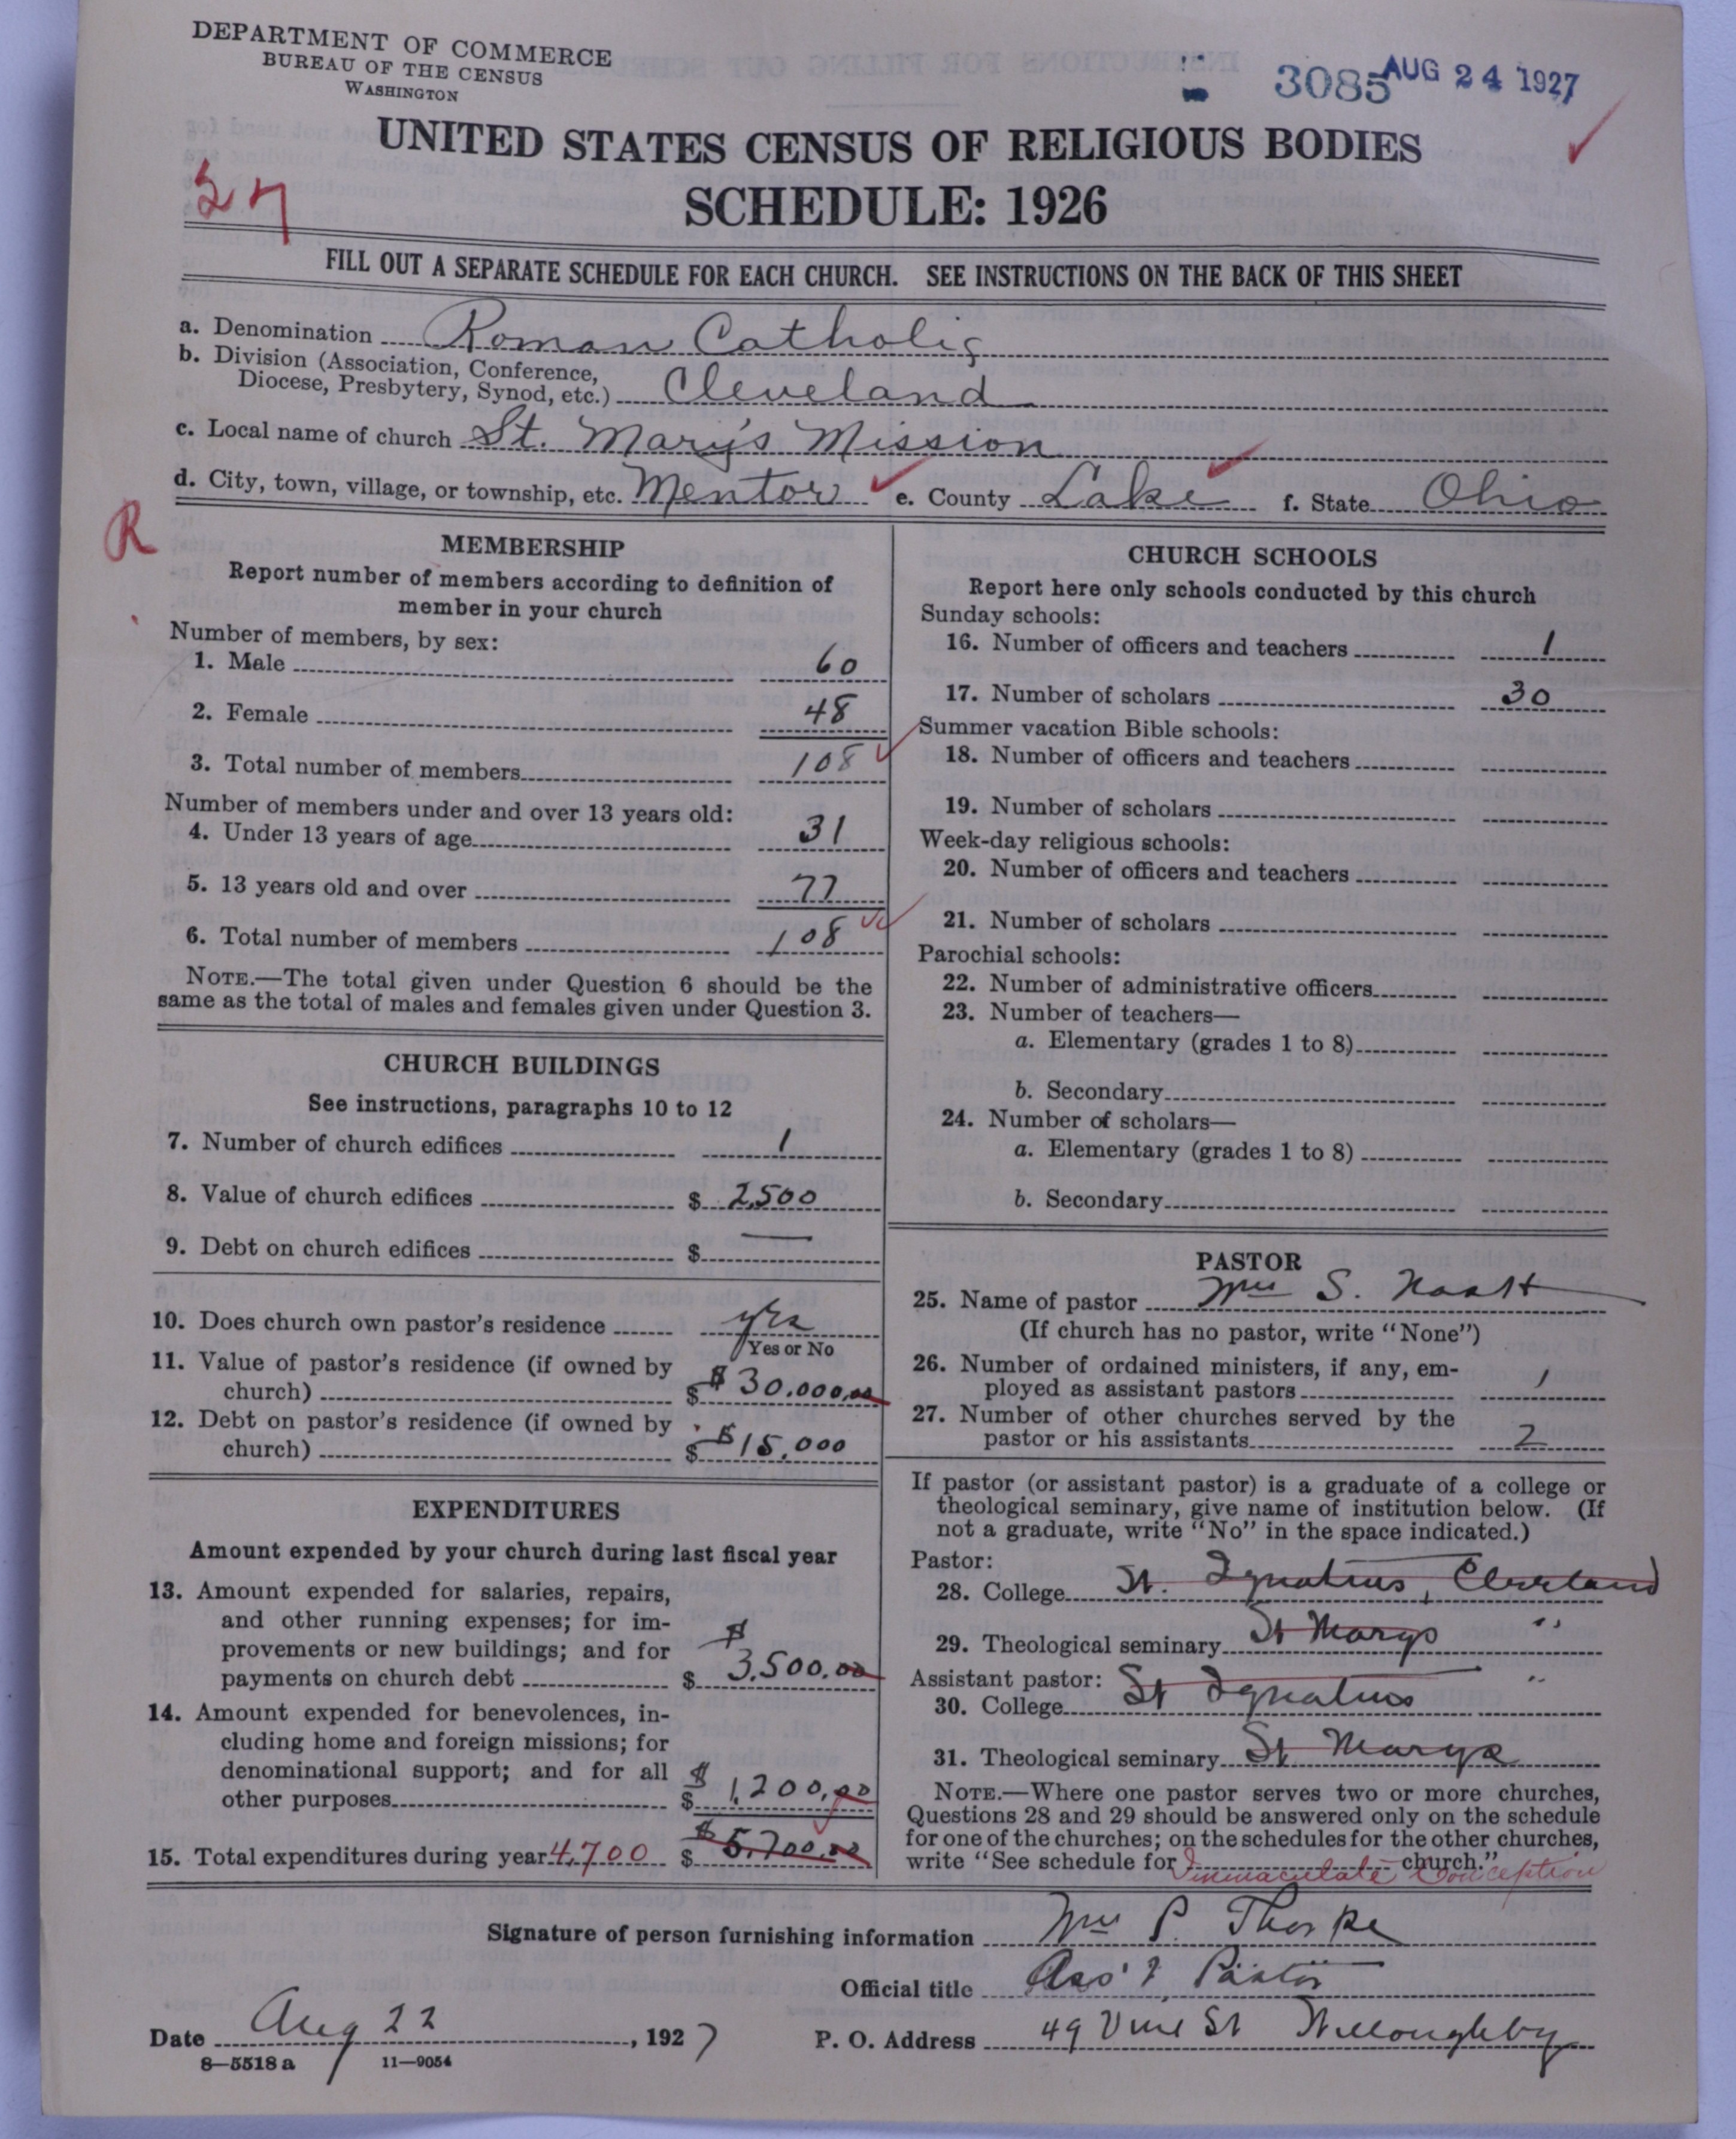 DEPARTMENT OF COMMERCE
BUREAU OF THE CENSUS
WASHINGTON
3085 AUG 24 1927
UNITED STATES CENSUS OF RELIGIOUS BODIES
SCHEDULE: 1926
FILL OUT A SEPARATE SCHEDULE FOR EACH CHURCH. SEE INSTRUCTIONS ON THE BACK OF THIS SHEET
a. Denomination Roman Catholic
b. Division (Association, Conference,
Diocese, Presbytery, Synod, etc.) Cleveland
c. Local name of church St. Mary's Mission
d. City, town, village, or township, etc. Mentor e. County Lake f. State Ohio
R
MEMBERSHIP
Report number of members according to definition of
member in your church
Number of members, by sex:
1. Male 60
2. Female 48
3. Total number of members 108
Number of members under and over 13 years old:
4. Under 13 years of age 31
5. 13 years old and over 77
6. Total number of members 108
NOTE.—The total given under Question 6 should be the
same as the total of males and females given under Question 3.
CHURCH BUILDINGS
See instructions, paragraphs 10 to 12
7. Number of church edifices 1
8. Value of church edifices $ 2,500
9. Debt on church edifices $ —
10. Does church own pastor's residence yes
Yes or No
11. Value of pastor's residence (if owned by
church) $ $30,000.00
12. Debt on pastor's residence (if owned by
church) $ $15,000
EXPENDITURES
Amount expended by your church during last fiscal year
13. Amount expended for salaries, repairs,
and other running expenses; for im-
provements or new buildings; and for $
payments on church debt $ 3,500.00
14. Amount expended for benevolences, in-
cluding home and foreign missions; for
denominational support; and for all $
other purposes $ 1,200.00
15. Total expenditures during year 4,700 $ $5,700.00
CHURCH SCHOOLS
Report here only schools conducted by this church
Sunday schools:
16. Number of officers and teachers 1
17. Number of scholars 30
Summer vacation Bible schools:
18. Number of officers and teachers
19. Number of scholars
Week-day religious schools:
20. Number of officers and teachers
21. Number of scholars
Parochial schools:
22. Number of administrative officers
23. Number of teachers—
a. Elementary (grades 1 to 8)
b. Secondary
24. Number of scholars—
a. Elementary (grades 1 to 8)
b. Secondary
PASTOR
25. Name of pastor Wm S.
(If church has no pastor, write "None")
26. Number of ordained ministers, if any, em-
ployed as assistant pastors 1
27. Number of other churches served by the
pastor or his assistants 2
If pastor (or assistant pastor) is a graduate of a college or
theological seminary, give name of institution below. (If
not a graduate, write "No" in the space indicated.)
Pastor:
28. College St. Ignatius, Cleveland
29. Theological seminary St Marys "
Assistant pastor:
30. College St Ignatius "
31. Theological seminary St. Marys
NOTE.—Where one pastor serves two or more churches,
Questions 28 and 29 should be answered only on the schedule
for one of the churches; on the schedules for the other churches,
write "See schedule for Immaculate Conception church."
Signature of person furnishing information Wm P. Thorpe
Official title Ass't Pastor
Date Aug 22, 1927 P. O. Address 49 Vine St Willoughby
8—5518 a 11—9054